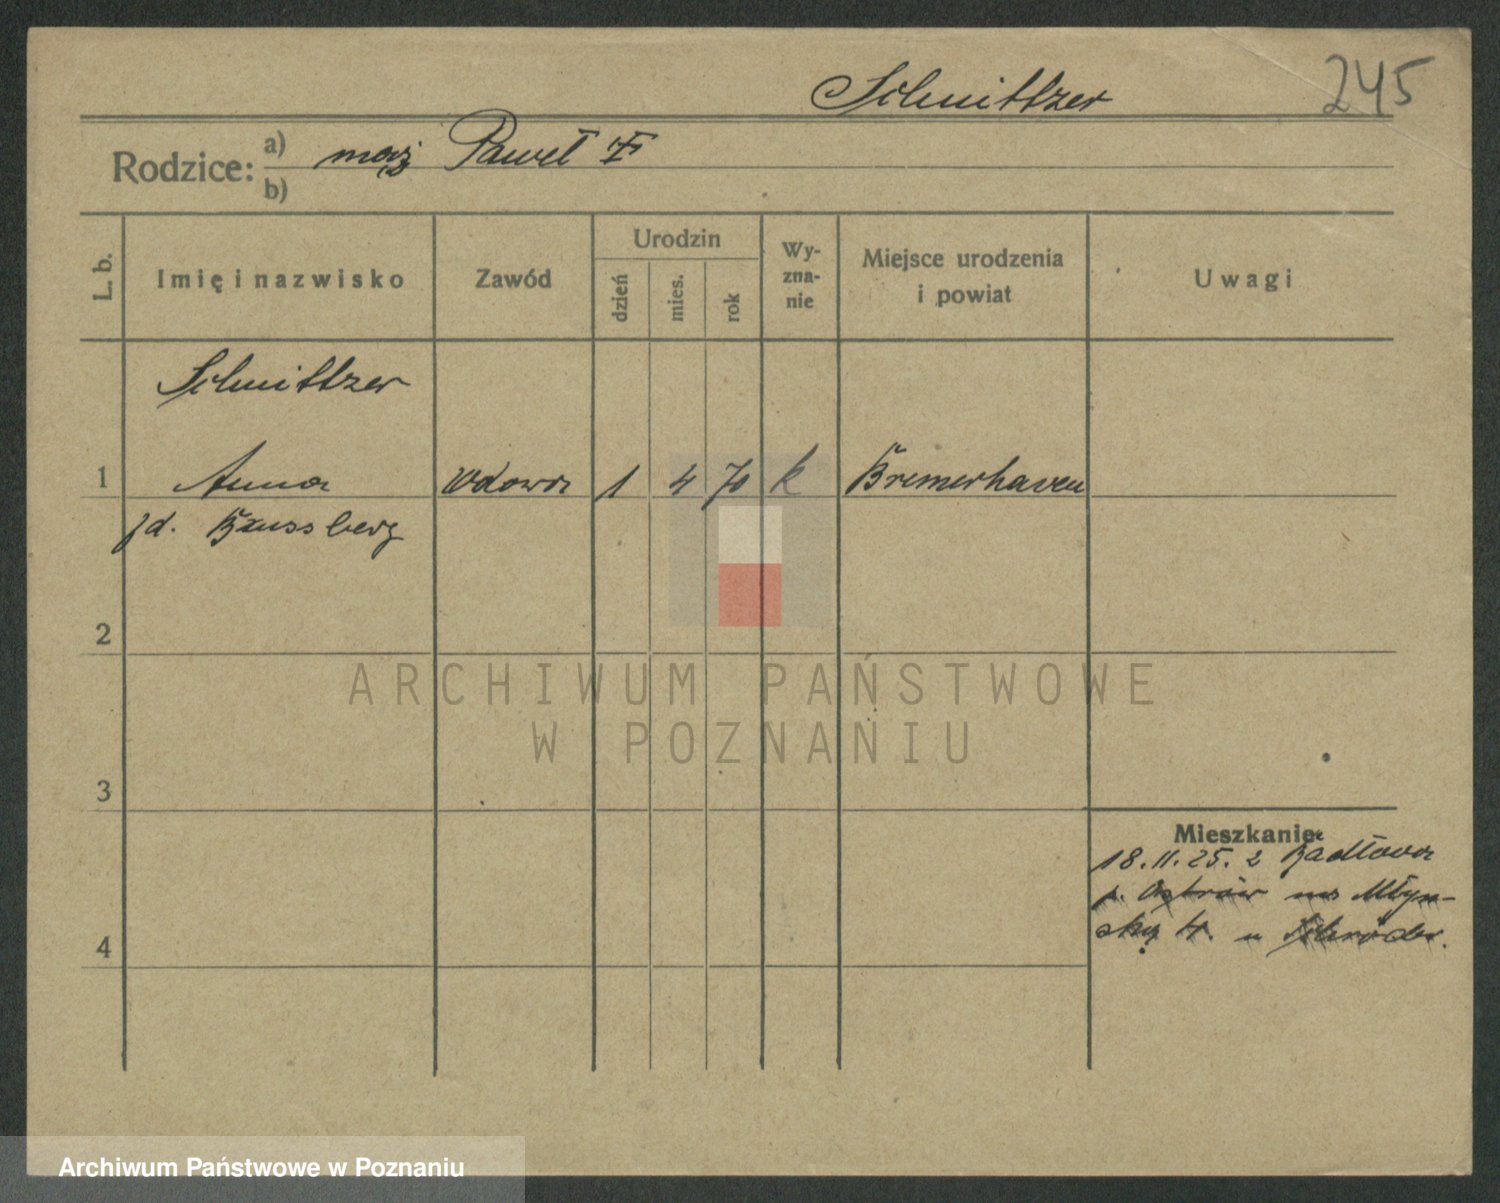 Schmittzer 245
Rodzice: a) mąż Paweł
b)
L. b.
Imię i nazwisko
Zawód
Urodzin
dzień
mies.
rok
Wy-
zna-
nie
Miejsce urodzenia
i powiat
Uwagi
Schmittzer
1 Anna wdowa 1 4 70 k Bremerhaven
2
3
4
Mieszkanie
18.11.25. z
p. Ostrów na Młyń-
ską 4. u Schröder.
ARCHIWUM PAŃSTWOWE
W POZNANIU
Archiwum Państwowe w Poznaniu